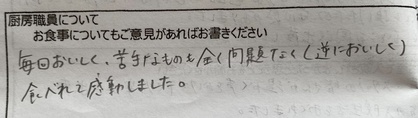 厨房職員について
お食事についてもご意見があればお書きください
毎回おいしく、苦手なものも全く問題なく(逆においしく)
食べれて感動しました。